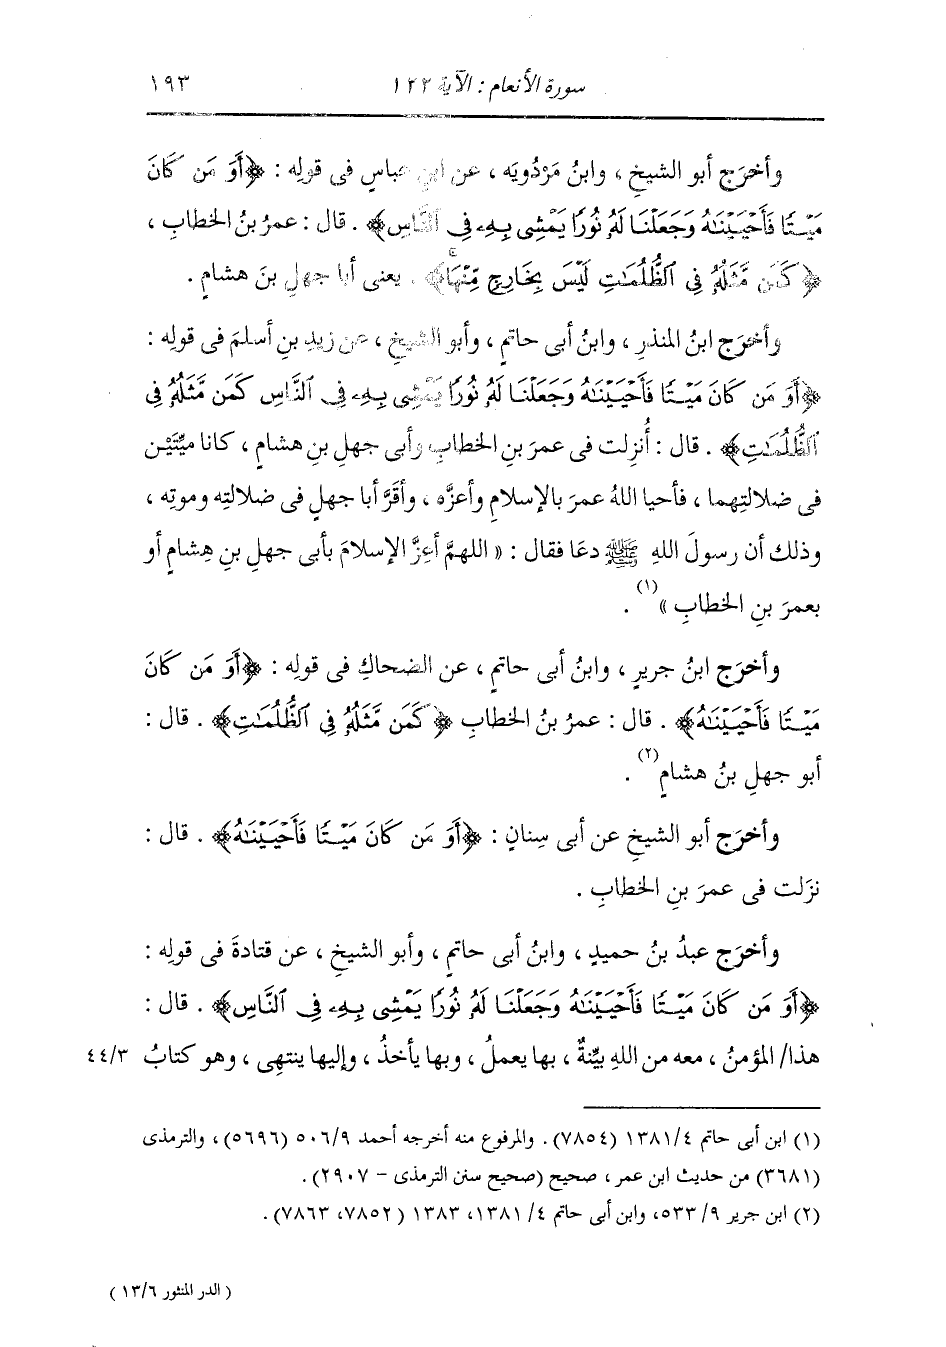 سورة الأنعام : الآية ١٢٢ ١٩٣
وأخرَج أبو الشيخِ ، وابنُ مَرْدُويَه ، عن ابنِ عباسٍ فى قولِه : ﴿أَوَ مَن كَانَ
مَيْتًا فَأَحْيَيْنَٰهُ وَجَعَلْنَا لَهُۥ نُورًا يَمْشِى بِهِۦ فِى ٱلنَّاسِ﴾ . قال : عمرُ بنُ الخطابِ ،
﴿كَمَن مَّثَلُهُۥ فِى ٱلظُّلُمَٰتِ لَيْسَ بِخَارِجٍ مِّنْهَا﴾ . يعنى أبا جهلِ بنَ هشامٍ .
وأخرَج ابنُ المنذرِ ، وابنُ أبى حاتمٍ ، وأبو الشيخِ ، عن زيدِ بنِ أسلمَ فى قولِه :
﴿أَوَ مَن كَانَ مَيْتًا فَأَحْيَيْنَٰهُ وَجَعَلْنَا لَهُۥ نُورًا يَمْشِى بِهِۦ فِى ٱلنَّاسِ كَمَن مَّثَلُهُۥ فِى
ٱلظُّلُمَٰتِ﴾ . قال : أُنزِلت فى عمرَ بنِ الخطابِ وأبى جهلِ بنِ هشامٍ ، كانا ميِّتَيْن
فى ضلالتِهما ، فأحيا اللهُ عمرَ بالإسلامِ وأعزَّه ، وأقَرَّ أبا جهلٍ فى ضلالتِه وموتِه ،
وذلك أن رسولَ اللهِ ﷺ دعَا فقال : « اللهمَّ أعِزَّ الإسلامَ بأبى جهلِ بنِ هِشامٍ أو
بعمرَ بنِ الخطابِ »(١) .
وأخرَج ابنُ جريرٍ ، وابنُ أبى حاتمٍ ، عن الضحاكِ فى قولِه : ﴿أَوَ مَن كَانَ
مَيْتًا فَأَحْيَيْنَٰهُ﴾ . قال : عمرُ بنُ الخطابِ ﴿كَمَن مَّثَلُهُۥ فِى ٱلظُّلُمَٰتِ﴾ . قال :
أبو جهلِ بنُ هشامٍ(٢) .
وأخرَج أبو الشيخِ عن أبى سِنانٍ : ﴿أَوَ مَن كَانَ مَيْتًا فَأَحْيَيْنَٰهُ﴾ . قال :
نزَلت فى عمرَ بنِ الخطابِ .
وأخرَج عبدُ بنُ حميدٍ ، وابنُ أبى حاتمٍ ، وأبو الشيخِ ، عن قتادةَ فى قولِه :
﴿أَوَ مَن كَانَ مَيْتًا فَأَحْيَيْنَٰهُ وَجَعَلْنَا لَهُۥ نُورًا يَمْشِى بِهِۦ فِى ٱلنَّاسِ﴾ . قال :
هذا/ المؤمنُ ، معه من اللهِ بيِّنةٌ ، بها يعملُ ، وبها يأخذُ ، وإليها ينتهِى ، وهو كتابُ ٤٤/٣
(١) ابن أبى حاتم ١٣٨١/٤ (٧٨٥٤) . والمرفوع منه أخرجه أحمد ٥٠٦/٩ (٥٦٩٦) ، والترمذى
(٣٦٨١) من حديث ابن عمر ، صحيح (صحيح سنن الترمذى - ٢٩٠٧) .
(٢) ابن جرير ٥٣٣/٩، وابن أبى حاتم ٤/ ١٣٨١، ١٣٨٣ ( ٧٨٥٢، ٧٨٦٣) .
( الدر المنثور ١٣/٦ )